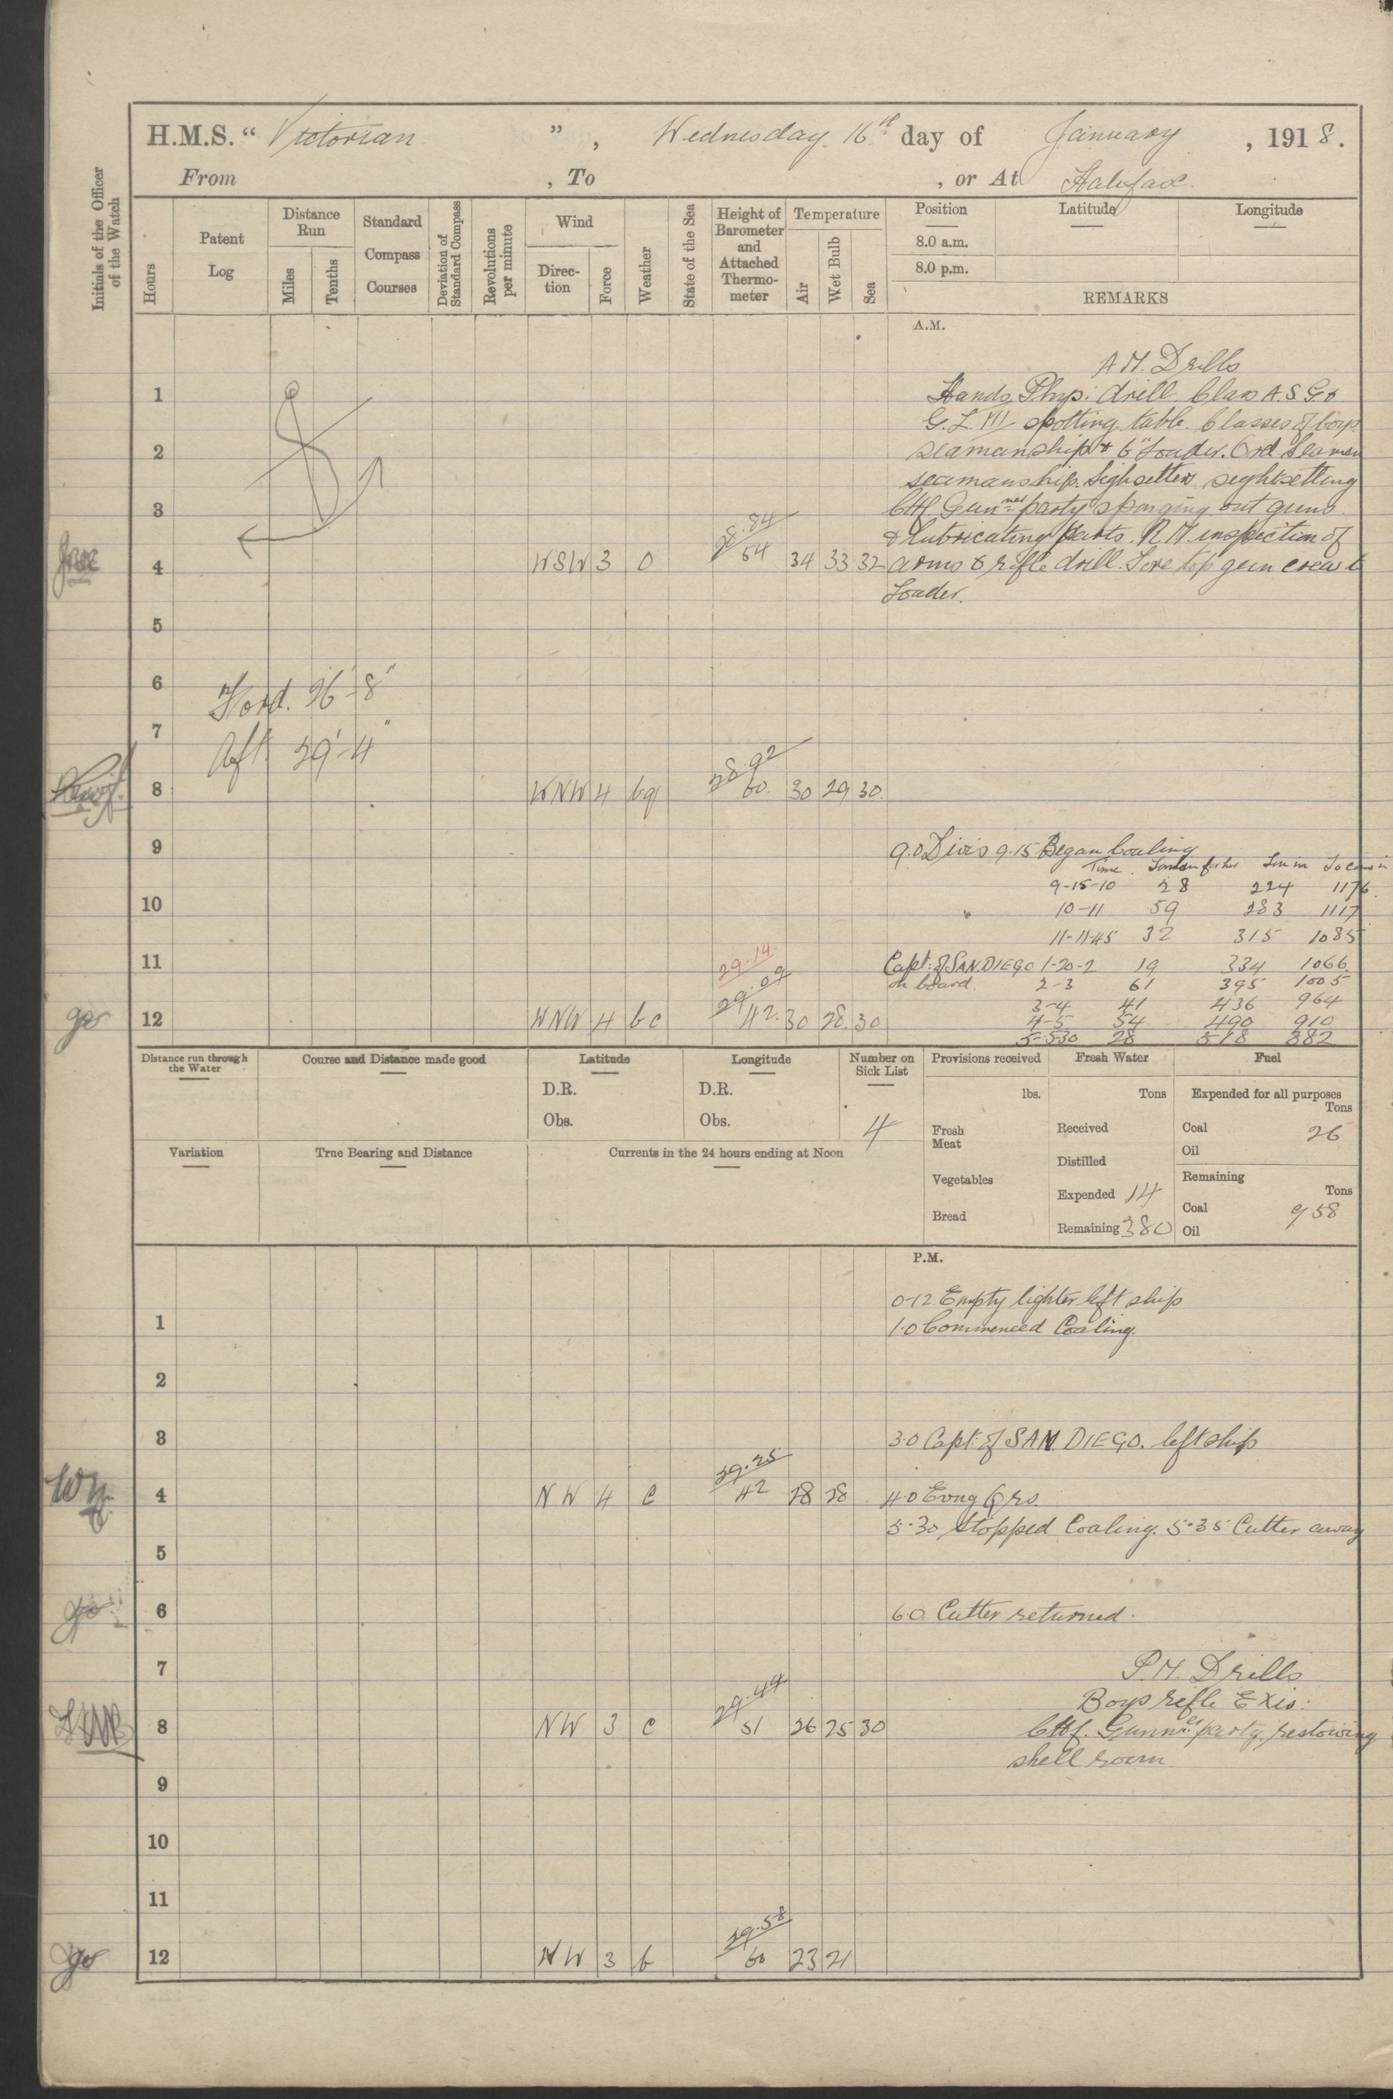 H.M.S. " Victorian ", Wednesday 16th day of January, 1918.
From , To , or At Halifax
Initials of the Officer of the Watch
Hours
Patent Log
Distance Run
Miles
Tenths
Standard Compass Courses
Deviation of Standard Compass
Revolutions per minute
Wind
Direction
Force
Weather
State of the Sea
Height of Barometer and Attached Thermometer
Temperature
Air
Wet Bulb
Sea
Position Latitude Longitude
8.0 a.m.
8.0 p.m.
REMARKS
A.M.
A M. Drills
1 Hands Phys: drill. Class A.S.G. &
G. L. III spotting table. Classes of boys
2 seamanship & 6" Loader. Ord Seamen
seamanship. Sighsetters sightsetting
3 Ch f. Gunners party sponging out guns
28.84
& lubricating parts. R M inspection of
4 WSW 3 O 54 34 33 32 arms & rifle drill. Fore top gun crew to
Loader.
5
6
Ford. 26'-8"
7
Aft 29'-4"
28.92
8 WNW 4 bq 60 30 29 30
9 9.0 Divis 9.15 Began Coaling
Time
9-15-10 28 224 1176
10 10-11 59 283 1117
11-11.45 32 315 1085
29.14
11 Capt: of SAN DIEGO 1-20-2 19 334 1066
on board 2-3 61 395 1005
29.09
3-4 41 436 964
12 WNW 4 bc 42 30 28 30 4-5 54 490 910
5-5.30 28 518 882
Distance run through the Water
Course and Distance made good
Latitude
D.R.
Obs.
Longitude
D.R.
Obs.
Number on Sick List
4
Provisions received
lbs.
Fresh Meat
Vegetables
Bread
Fresh Water
Tons
Received
Distilled
Expended 14
Remaining 380
Fuel
Expended for all purposes
Tons
Coal 26
Oil
Remaining
Tons
Coal 958
Oil
Variation
True Bearing and Distance
Currents in the 24 hours ending at Noon
P.M.
0-12 Empty lighter left ship
1 1.0 Commenced Coaling.
2
3 3.0 Capt: of SAN DIEGO. left ship
29.25
4 NW 4 c 42 28 28 4.0 Evng Qrs.
5.30 Stopped Coaling. 5.35 Cutter away
5
6 6.0 Cutter returned.
7 P.M. Drills
29.44
Boys rifle Exis:
8 NW 3 c 51 26 25 30 Ch f. Gunners party restowing
shell room
9
10
11
29.58
12 NW 3 b 60 23 21